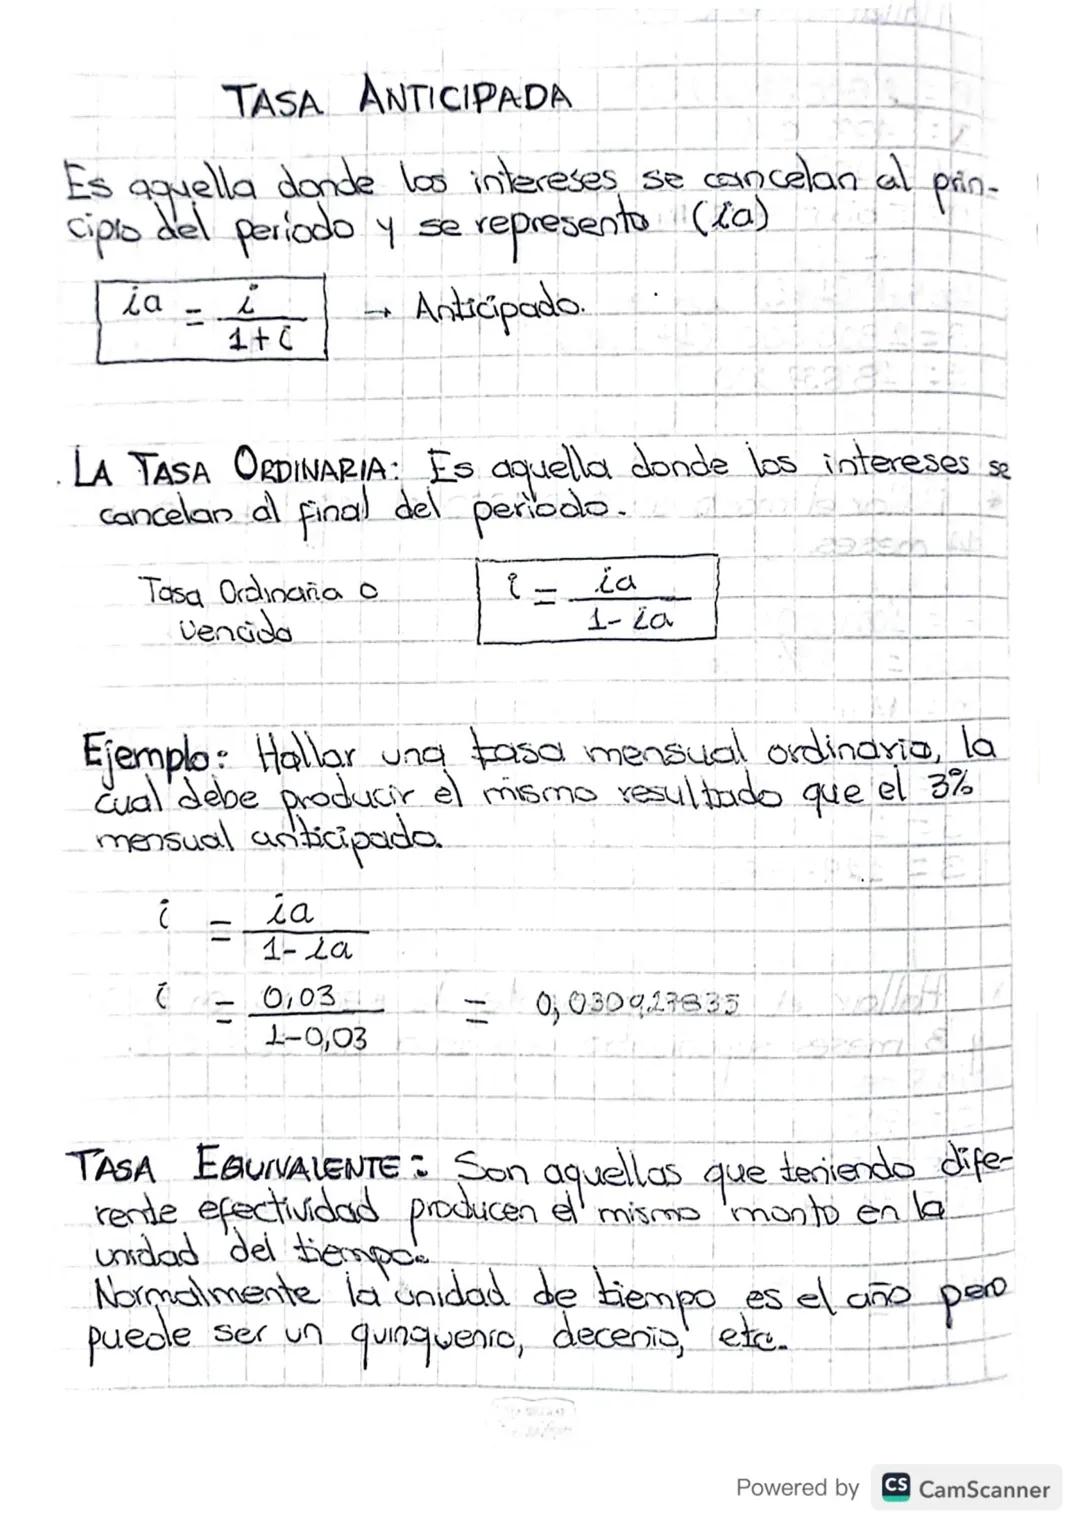 TASA ANTICIPADA
Es aquella donde los intereses se cancelan al prin-
cipio del periodo y se representa (ia)
ia = i / 1+i → Anticipado.
LA TASA ORDINARIA: Es aquella donde los intereses se
cancelan al final del periodo.
Tasa Ordinaria o
Vencida
i = ia / 1-ia
Ejemplo: Hallar una tasa mensual ordinaria, la
cual debe producir el mismo resultado que el 3%
mensual anticipado.
i = ia / 1-ia
i = 0,03 / 1-0,03 = 0,030927835
TASA EQUIVALENTE: Son aquellas que teniendo dife-
rente efectividad producen el mismo monto en la
unidad del tiempo.
Normalmente la unidad de tiempo es el año pero
puede ser un quinquenio, decenio, etc.
Powered by CS CamScanner